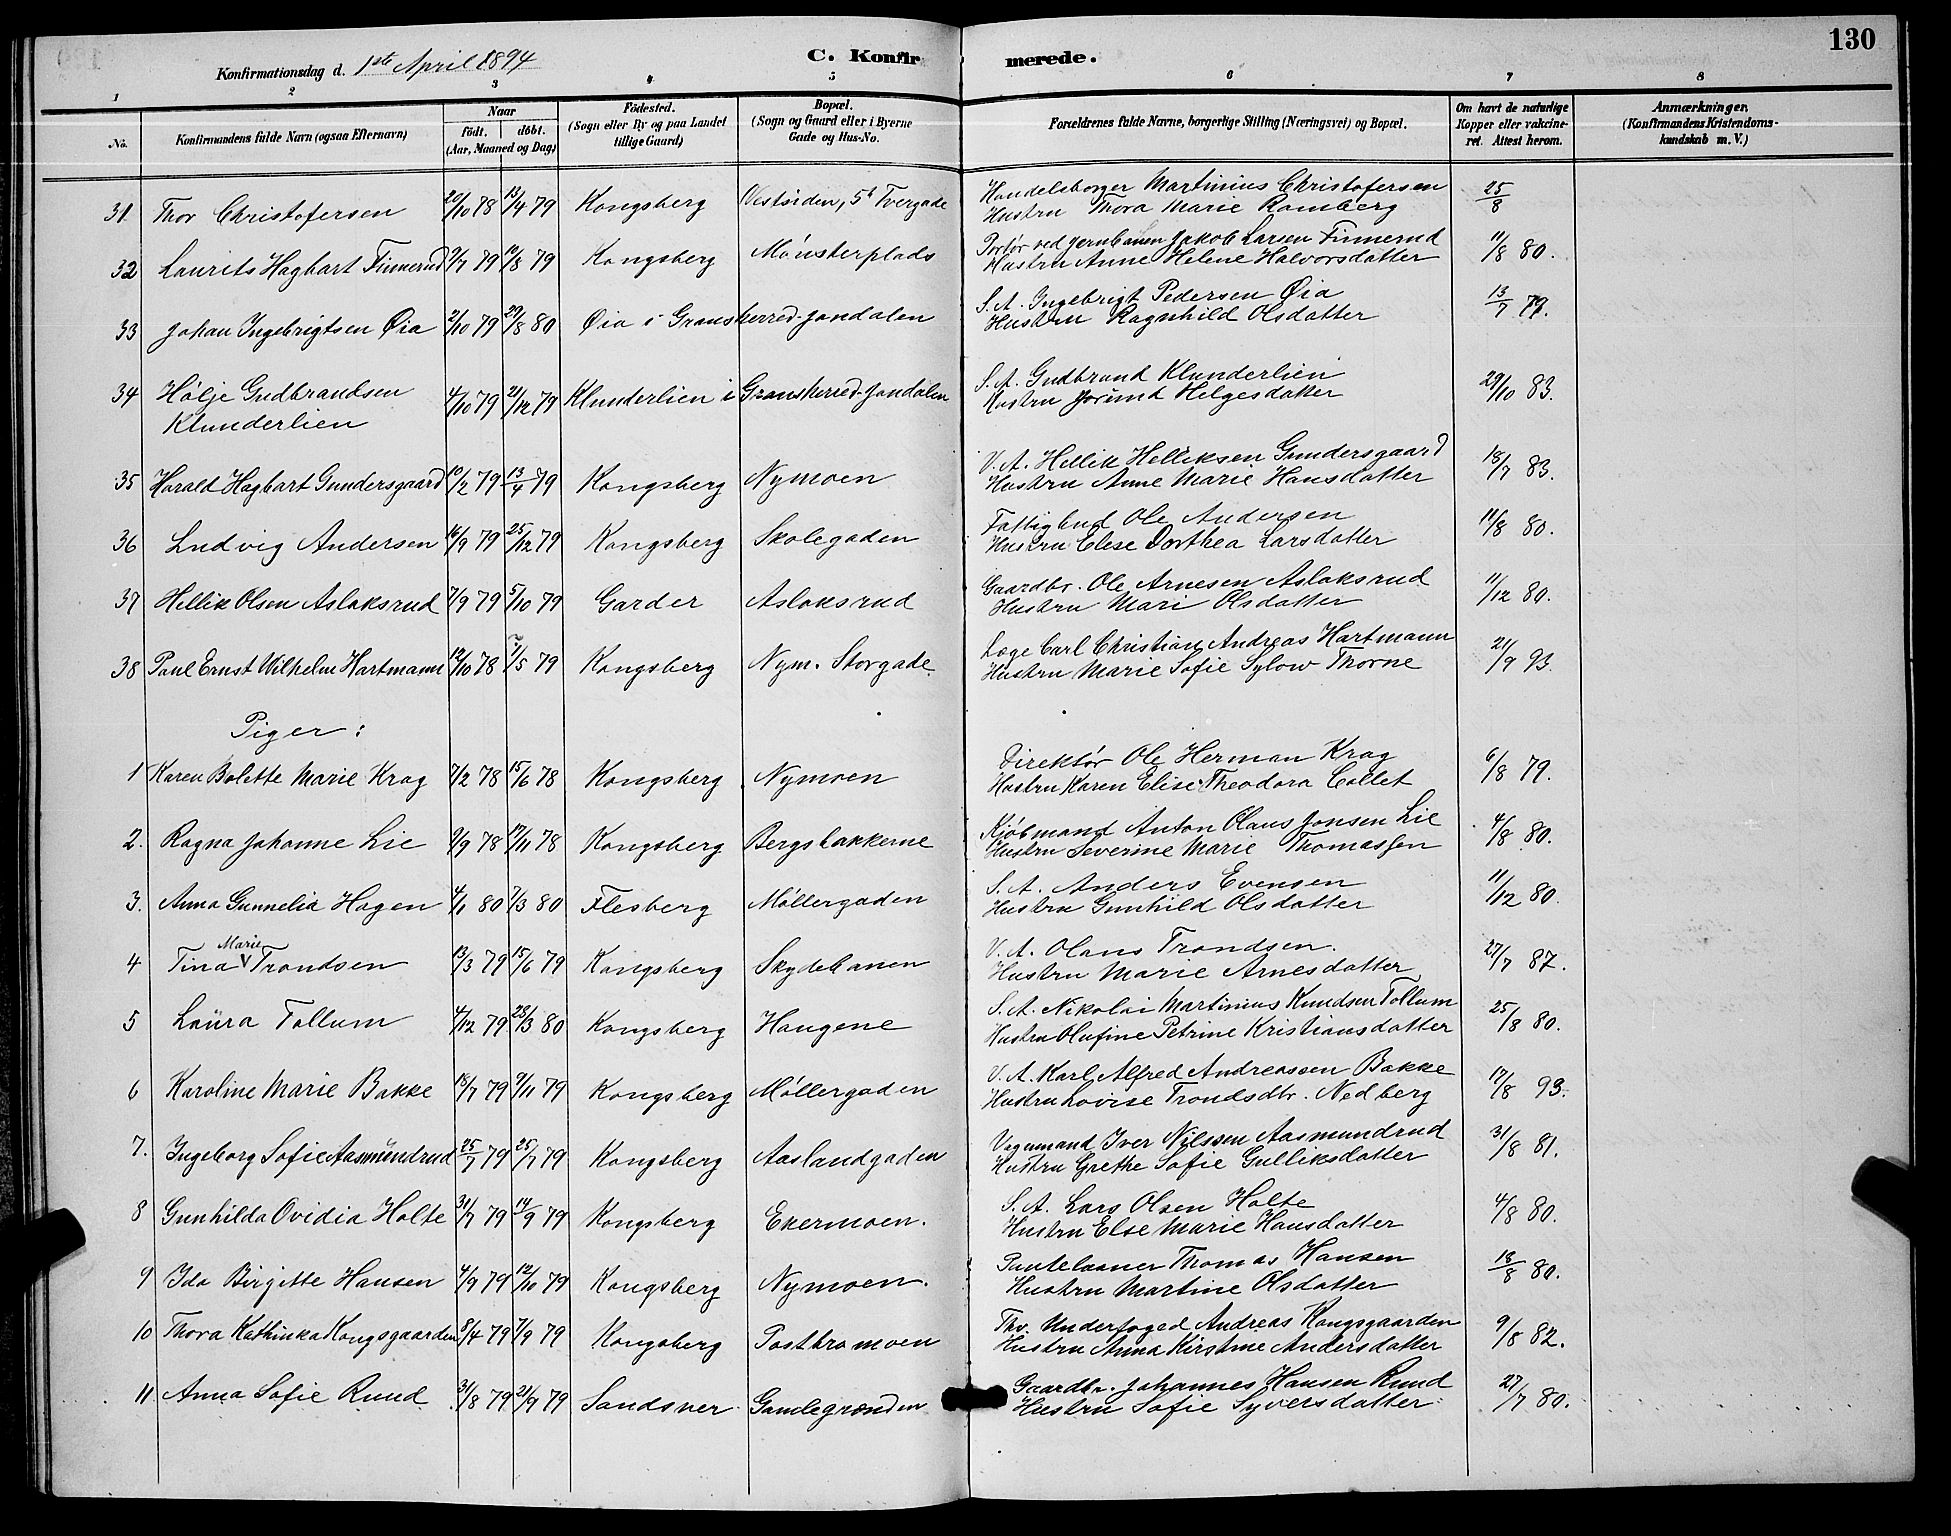 130
Konfirmationsdag d. 1ste April 1894
C. Konfirmerede.
1 2 3 4 5 6 7 8
No. Konfirmandens fulde Navn (ogsaa Efternavn) Naar födt. döbt. (Aar, Maaned og Dag) Födested. (Sogn eller By og paa Landet tillige Gaard) Bopæl. (Sogn og Gaard eller i Byerne Gade og Hus-No. Forældrenes fulde Navne, borgerlige Stilling (Næringsvei) og Bopæl. Om havt de naturlige Kopper eller vakcineret. Attest herom. Anmærkninger. (Konfirmandens Kristendomskundskab m. V.)
31. Thor Christofersen 20/10 78 13/4 79 Kongsberg Vestsiden, 5t Tvergade Handelsborger Martinius Christofersen 25/8
Hustru Thora Marie Romberg
32 Laurits Hagbart Finnerud 9/7 79 10/8 79 Kongsberg Mönsterplads Portör ved jernbanen Jakob Larsen Finnerud 11/8 80.
Hustru Anne Helene Halvorsdatter
33 Johan Ingebrigtsen Øia 2/10 79 29/8 80 Øia i Gransherred-Jondalen S. A. Ingebrigt Pedersen Øia 13/7 79.
Hustru Ragnhild Olsdatter
34 Hölje Gudbrandsen 4/10 79 21/12 79 Klunderlien i Gransherred-Jondalen S. A. Gudbrand Klunderlien 29/10 83.
Klunderlien Hustru Jörund Helgesdatter
35 Harald Hagbart Gundersgaard 10/2 79 13/4 79 Kongsberg Nymoen V. A. Hellik Helliksen Gundersgaard 18/7 83.
Hustru Anne Marie Hansdatter
36 Ludvig Andersen 16/9 79 25/12 79 Kongsberg Skolegaden Fattigbud Ole Andersen 11/8 80.
Hustru Elise Dorthea Larsdatter
37 Hellik Olsen Aslaksrud 7/9 79 5/10 79 Garder Aslaksrud Gaardbr. Ole Arnesen Aslaksrud 11/12 80.
Hustru Mari Olsdatter
38 Paul Ernst Wilhelm Hartmann 12/10 78 7/5 79 Kongsberg Nym. Storgade. Læge Carl Christian Andreas Hartmann 21/9 93.
Hustru Marie Sofie Sylow Thorne
Piger:
1 Karen Bolette Marie Krag 7/2 78 15/6 78 Kongsberg Nymoen Direktör Ole Herman Krag 6/8 79.
Hustru Karen Elise Theodora Collet
2. Ragna Johanne Lie 9/9 78 17/11 78 Kongsberg Bergsbakkerne Kjöbmand Anton Olaus Jonsen Lie 4/8 80.
Hustru Severine Marie Thomassen
3. Anna Gunnelia Hagen 4/1 80 7/3 80 Flesberg Möllergaden S. A. Anders Evensen 11/12 80.
Hustru Gunhild Olsdatter
4 Tina Marie Trondsen 13/3 79 15/6 79 Kongsberg Skydebanen V. A. Olaus Trondsen. 27/7 87.
Hustru Marie Arnesdatter
5 Laura Tollum 4/12 79 28/3 80 Kongsberg Haugene S. A. Nikolai Martinius Knudsen Tollum 25/8 80.
Hustru Olufine Petrine Kristiansdatter
6 Karoline Marie Bakke 18/7 79 9/11 79 Kongsberg Möllergaden V. A. Karl Alfred Andreassen Bakke 17/8 93.
Hustru Lovise Trondsdtr. Nedberg
7. Ingeborg Sofie Aasmundrud 25/7 79 25/7 79 Kongsberg Aaslandgaden Vognmand Iver Nilssen Aasmundrud 31/8 81.
Hustru Grethe Sofie Gulliksdatter
8 Gunhilda Ovidia Holte 31/7 79 14/9 79 Kongsberg Ekermoen. S. A. Lars Olsen Holte 4/8 80.
Hustru Else Marie Hansdatter
9 Ida Birgitte Hansen 4/9 79 12/10 79 Kongsberg Nymoen. Pantelaaner Thomas Hansen 18/8 80.
Hustru Martine Olsdatter
10 Thora Kathinka Kongsgaarden 8/4 79 7/9 79 Kongsberg Postbromoen Thv. Underfoged Andreas Kongsgaarden 9/8 82.
Hustru Anna Kirstine Andersdatter
11 Anna Sofie Ruud 31/8 79 21/9 79 Sandsver Gamlegrænden Gaardbr. Johannes Hansen Ruud 27/7 80.
Hustru Sofie Syversdatter